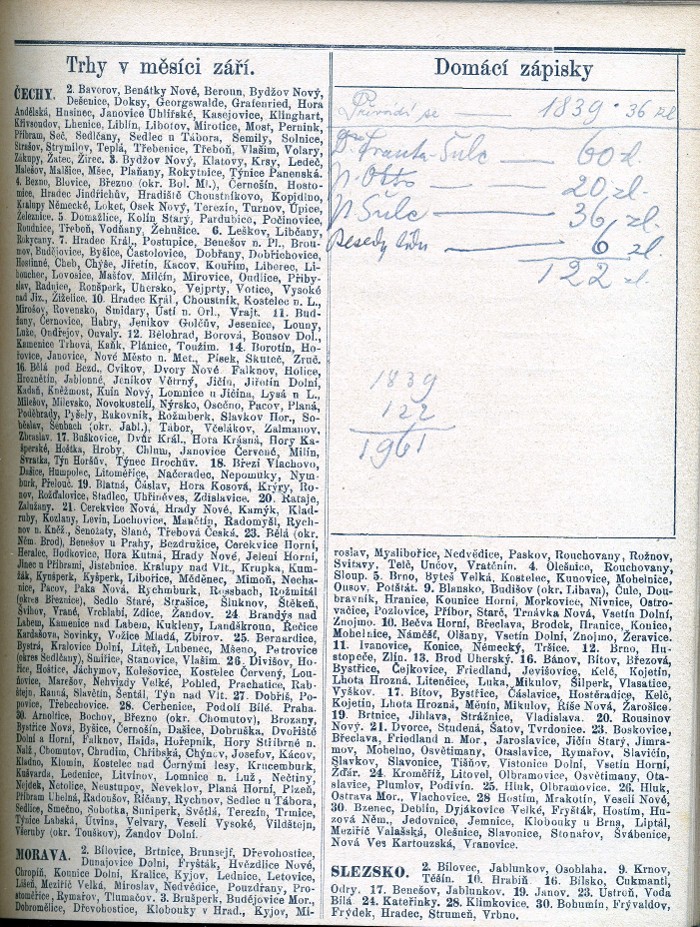 Trhy v měsíci září.
ČECHY. 2. Bavorov, Benátky Nové, Beroun, Bydžov Nový,
Dešenice, Doksy, Georgswalde, Grafenried, Hora
Andělská, Husinec, Janovice Uhlířské, Kasejovice, Klinghart,
Křivsoudov, Lhenice, Liblín, Libotov, Mirotice, Most, Pernink,
Příbram, Seč, Sedlčany, Sedlec u Tábora, Semily, Solnice,
Strašov, Strymilov, Teplá, Třebenice, Třeboň, Vlašim, Volary,
Zákupy, Žatec, Žirec. 3. Bydžov Nový, Klatovy, Krsy, Ledeč,
Malešov, Malšice, Mšec, Plaňany, Rokytnice, Týnice Panenská.
4. Bezno, Blovice, Březno (okr. Bol. Ml.), Černošín, Hosto-
nice, Hradec Jindřichův, Hradiště Choustníkovo, Kopidlno,
Kralupy Německé, Loket, Osek Nový, Terezín, Turnov, Úpice,
Železnice. 5. Domažlice, Kolín Starý, Pardubice, Počinovice,
Roudnice, Třeboň, Vodňany, Žehušice. 6. Leškov, Libčany,
Rokycany. 7. Hradec Král., Postupice, Benešov n. Pl., Brou-
nov, Budějovice, Byšice, Častolovice, Dobřany, Dobřichovice,
Hostinné, Cheb, Chýše, Jiřetín, Kacov, Kouřim, Liberec, Li-
bouchec, Lovosice, Mašťov, Milčín, Mirovice, Oudlice, Přiby-
slav, Radnice, Ronšperk, Uhersko, Vejprty, Votice, Vysoké
nad Jiz., Žiželice. 10. Hradec Král., Choustník, Kostelec n. L.,
Mirošov, Rovensko, Smidary, Ústí n. Orl., Vrajt. 11. Bud-
žany, Černovice, Habry, Jeníkov Golčův, Jesenice, Louny,
Luže, Ondřejov, Ouvaly. 12. Bělohrad, Borová, Bousov Dol.,
Kamenice Trhová, Kaňk, Plánice, Toužim. 14. Borotín, Ho-
řovice, Janovice, Nové Město n. Met., Písek, Skuteč, Zruč.
16. Bělá pod Bezd., Cvikov, Dvory Nové, Falknov, Holice,
Hroznětín, Jablonné, Jeníkov Větrný, Jičín, Jiřetín Dolní,
Kadaň, Kněžmost, Kuín Nový, Lomnice u Jičína, Lysá n L.,
Milešov, Milevsko, Novokostelí, Nýrsko, Osečno, Pacov, Planá,
Poděbrady, Pyšely, Rakovník, Rožmberk, Slavkov Hor., So-
běslav, Šenbach (okr. Jabl.), Tábor, Včelákov, Zalmanov,
Zbraslav. 17. Buškovice, Dvůr Král., Hora Krásná, Hory Ka-
šperské, Hoštka, Hroby, Chlum, Janovice Červené, Milín,
Svratka, Týn Horšův, Týnec Hrochův. 18. Březí Vlachovo,
Dašice, Humpolec, Litoměřice, Načeradec, Nepomuky, Nym-
burk, Přelouč. 19. Blatná, Čáslav, Hora Kosová, Krýry, Ro-
nov, Rožďalovice, Stadlec, Uhříněves, Zdislavice. 20. Rataje,
Zalužany. 21. Cerekvice Nová, Hrady Nové, Kamýk, Klad-
ruby, Kozlany, Levín, Lochovice, Manětín, Radomyšl, Rych-
nov n. Kněž., Senožaty, Slaně, Třebová Česká. 23. Bělá (okr.
Něm. Brod), Benešov u Prahy, Bezdružice, Cerekvice Horní,
Heralec, Hodkovice, Hora Kutná, Hrady Nové, Jelení Horní,
Jinec u Příbrami, Jistebnice. Kralupy nad Vlt., Krupka, Kum-
žák, Kynšperk, Kyšperk, Libořice, Méděnec, Mimoň, Necha-
nice, Pacov, Paka Nová, Rychmburk, Rossbach, Rožmitál
(okres Březnice), Sedlo Staré, Strašice, Šluknov, Štěkeň,
Švihov, Vraně, Vrchlabí, Zdice, Žandov. 24. Brandýs nad
Labem, Kamenice nad Labem, Kukleny, Landškroun, Řečice
Kardašova, Sovinky, Vožice Mladá, Zbirov. 25. Bernardice,
Bystrá, Kralovice Dolní, Liteň, Lubenec, Mšeno, Petrovice
(okres Sedlčany), Smiřice, Stanovice, Vlašim. 26. Divišov, Ho-
řice, Hoštice, Jáchymov, Kolešovice, Kostelec Červený, Lou-
ňovice, Marešov, Mehvizdy Velké, Pohled, Prachatice, Rab-
štejn, Ranná, Slavětín, Šentál, Týn nad Vlt. 27. Dobříš, Po-
povice, Třebechovice. 28. Cerhenice, Podolí Bílé. Praha.
30. Arnoltice, Bochov, Březno (okr. Chomutov), Brozany,
Bystřice Nová, Byšice, Černošín, Dašice, Dobruška, Dvořiště
Dolní a Horní, Falknov, Haida, Hořepník, Hory Stříbrné n.
Nalž., Chomutov, Chrudim, Chříbská, Chýnov, Josefov, Kácov,
Kladno, Klomín, Kostelec nad Černými lesy, Krucemburk,
Kušvarda, Ledenice, Litvínov, Lomnice n. Luž., Nečtiny,
Nejdek, Netolice, Neustupov, Neveklov, Planá Horní, Plzeň,
Příbram Uhelná, Radoušov, Říčany, Rychnov, Sedlec u Tábora,
Sedlice, Smečno, Sobotka, Šumiperk, Světlá, Terezín, Trmice,
Týnice Labská, Útvina, Velvary, Veselí Vysoké, Vildštejn,
Všeruby (okr. Touškov), Žandov Dolní.
MORAVA. 2. Bílovice, Brtnice, Brunsejf, Dřevohostice,
Dunajovice Dolní, Fryšták, Hvězdlice Nové,
Chropíň, Kounice Dolní, Kralice, Kyjov, Lednice, Letovice,
Líšeň, Meziříč Velká, Miroslav, Nedvědice, Pouzdřany, Pro-
stoměřice, Rymařov, Tlumačov. 3. Brušperk, Budějovice Mor.,
Dobromělice, Dřevohostice, Klobouky v Hrad., Kyjov, Mi-
Domácí zápisky
Převádí se 1839 · 36 zl
Franta-Šulc — 60 zl.
p. Otto — 20 zl.
p. Šulc — 36 zl.
Besedy lidu — 6 zl.
122 zl.
1839
122
1961
roslav, Myslibořice, Nedvědice, Paskov, Rouchovany, Rožnov,
Svitavy, Telč, Unčov, Vratěnín. 4. Olešnice, Rouchovany,
Sloup. 5. Brno, Byteš Velká, Kostelec, Kunovice, Mohelnice,
Ousov, Potštát. 9. Blansko, Budišov (okr. Libava), Čulc, Dou-
bravník, Hranice, Kounice Horní, Morkovice, Nivnice, Ostro-
vačice, Pozlovice, Příbor, Starč, Trnávka Nová, Vsetín Dolní,
Znojmo. 10. Bečva Horní, Břeclava, Brodek, Hranice, Konice,
Mohelnice, Náměšť, Olšany, Vsetín Dolní, Znojmo, Žeravice.
11. Ivanovice, Konice, Německý, Tršice. 12. Brno, Hu-
stopeče, Zlín. 13. Brod Uherský. 16. Bánov, Bítov, Březová,
Bystřice, Čejkovice, Friedland, Jevišovice, Kelč, Kojetín,
Lhota Hrozná, Litenčice, Luka, Mikulov, Šilperk, Vlasatice,
Vyškov. 17. Bítov, Bystřice, Čáslavice, Hostěradice, Kelč,
Kojetín, Lhota Hrozná, Měnín, Mikulov, Říše Nová, Žarošice.
19. Brtnice, Jihlava, Strážnice, Vladislava. 20. Rousinov
Nový. 21. Dvorce, Studená, Šatov, Tvrdonice. 23. Boskovice,
Břeclava, Friedland n Mor., Jaroslavice, Jičín Starý, Jimra-
mov, Mohelno, Osvětimany, Otaslavice, Rymařov, Slavičín,
Slavkov, Slavonice, Tišňov, Vistonice Dolní, Vsetín Horní,
Žďár. 24. Kroměříž, Litovel, Olbramovice, Osvětimany, Ota-
slavice, Plumlov, Podivín. 25. Hluk, Olbramovice. 26. Hluk,
Ostrava Mor., Vlachovice. 28 Hostím, Mrakotín, Veselí Nové,
30. Bzenec, Deblín, Dyjákovice Velké, Fryšták, Hostím, Hu-
zová Něm., Jedovnice, Jemnice, Klobouky u Brna, Liptál,
Meziříč Valašská, Olešnice, Slavonice, Stonařov, Švábenice,
Nová Ves Kartouzská, Vranovice.
SLEZSKO. 2. Bílovec, Jablunkov, Osoblaha. 9. Krnov,
Těšín. 10. Hrabiň 16. Bílsko, Cukmantl,
Odry. 17. Benešov, Jablunkov. 19. Janov. 23. Ustroň, Voda
Bílá 24. Kateřinky. 28. Klimkovice. 30. Bohumín, Frývaldov,
Frýdek, Hradec, Strumeň, Vrbno.